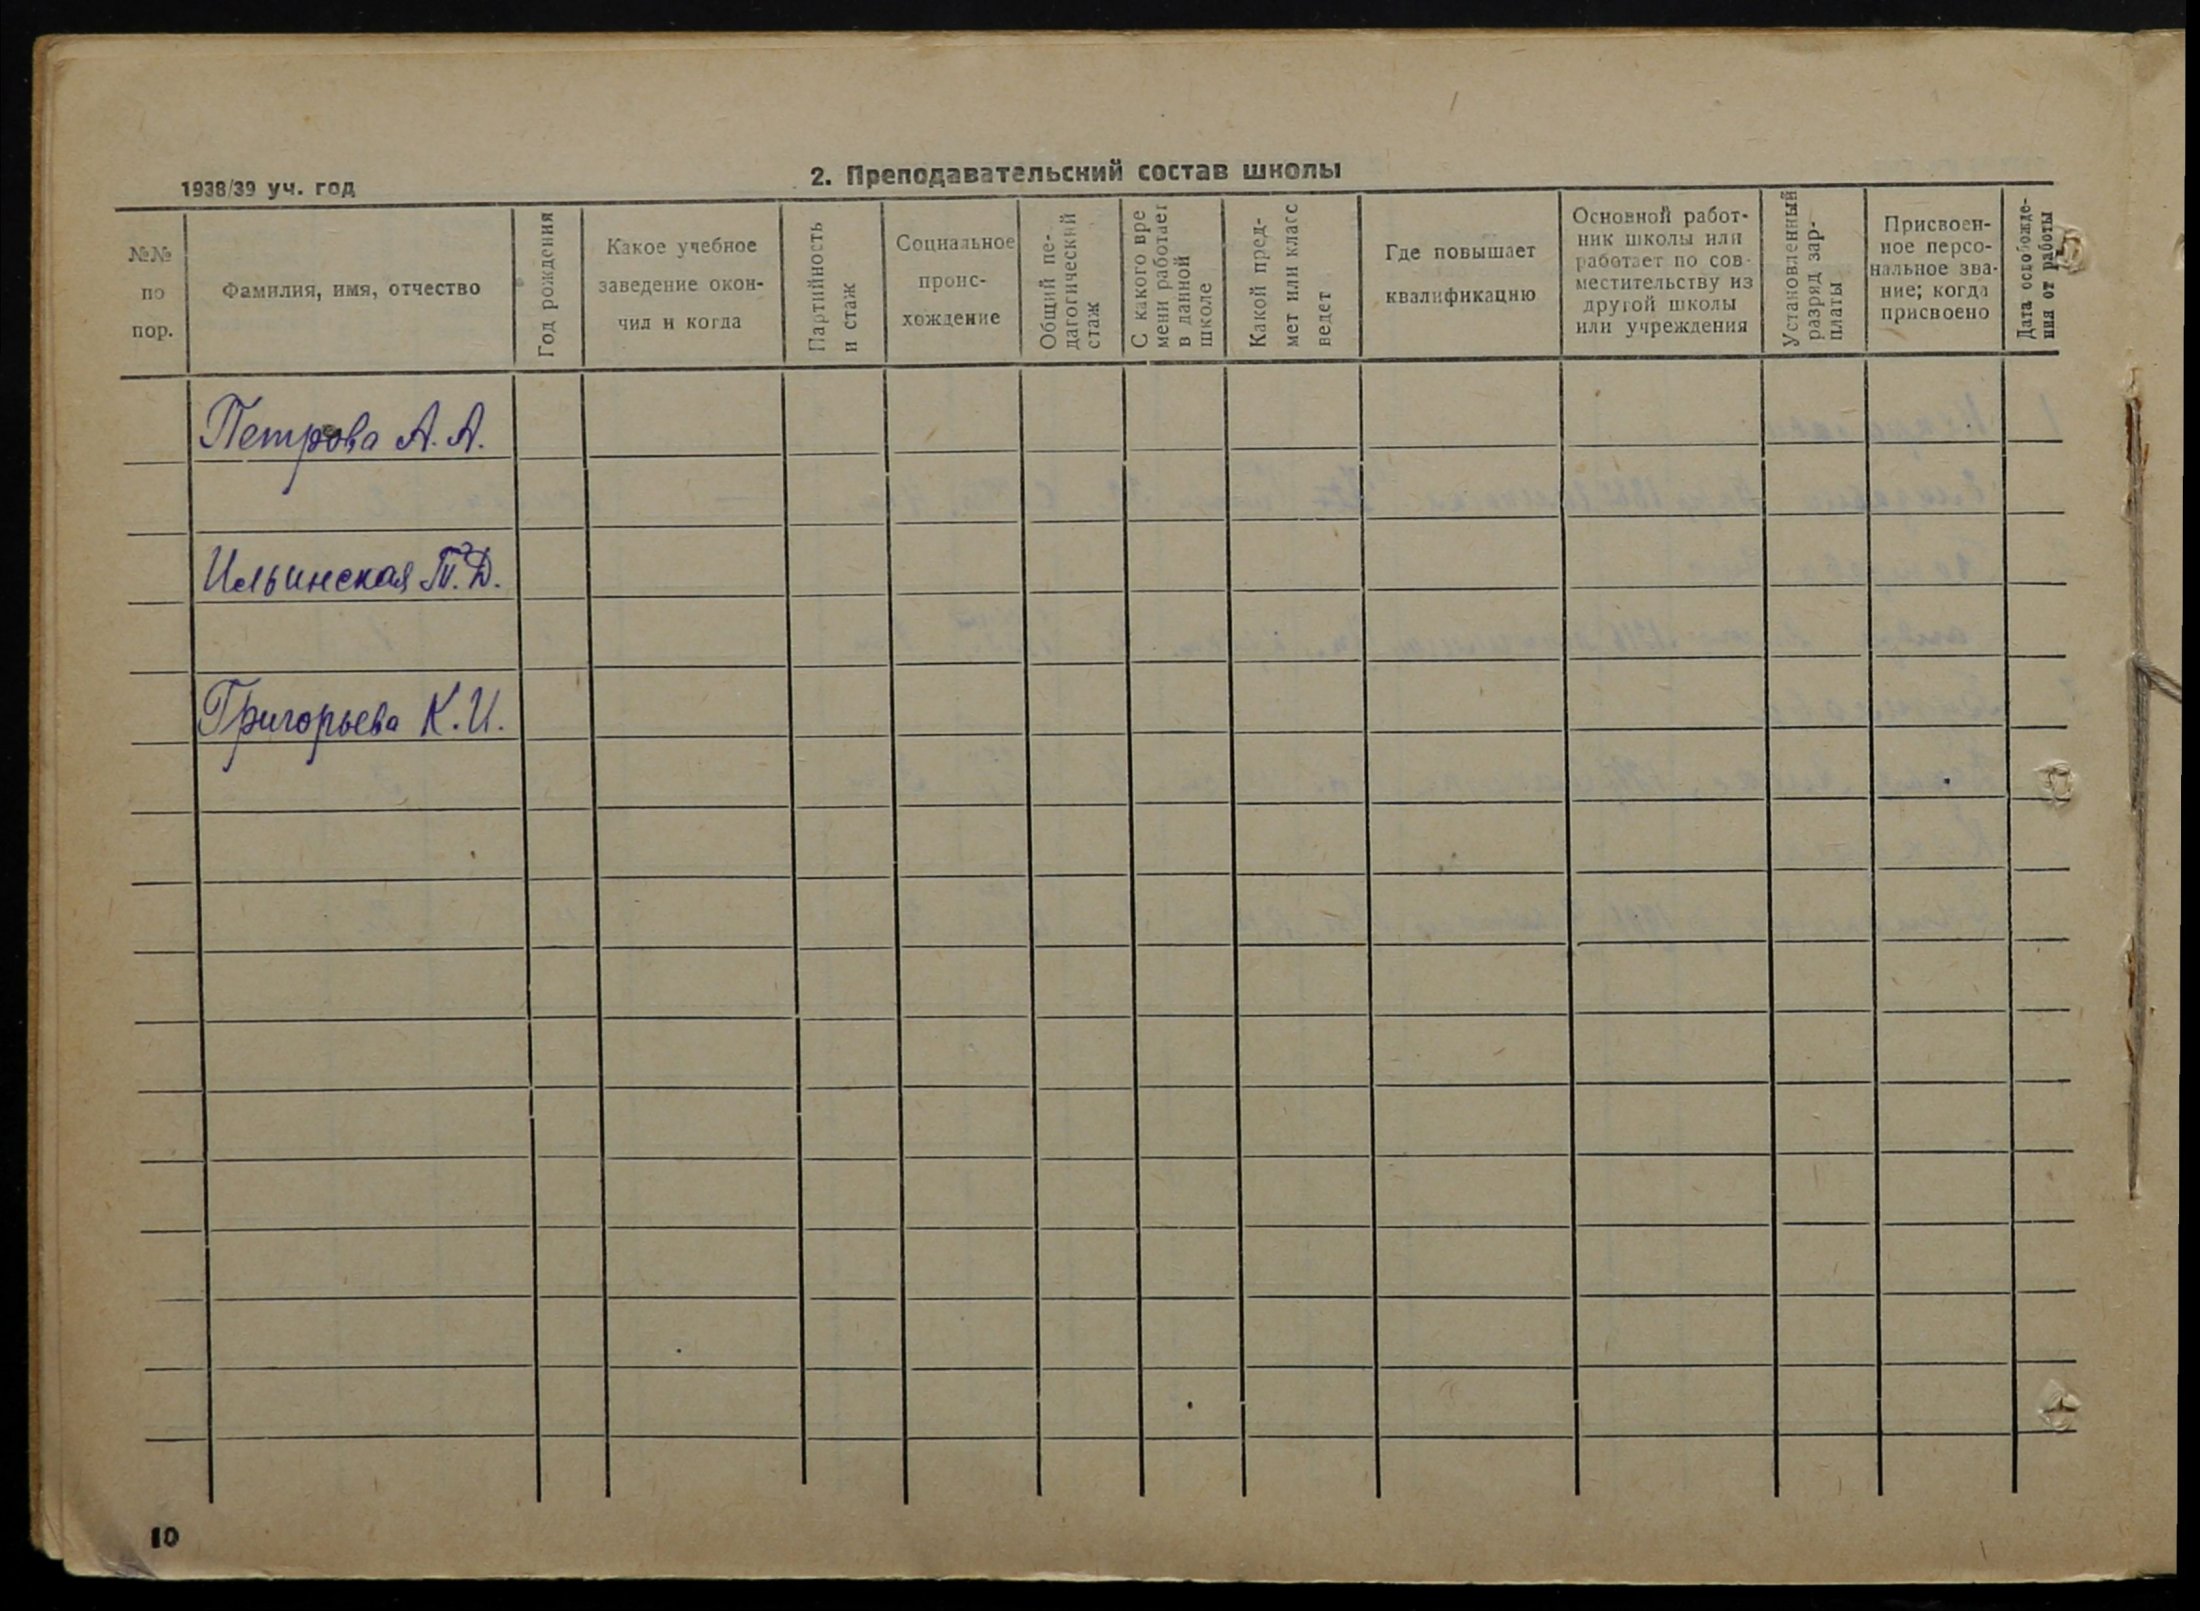 1938/39 уч. год
2. Преподавательский состав школы
№№
по
пор.
Фамилия, имя, отчество
Год рождения
Какое учебное
заведение окон-
чил и когда
Партийность
и стаж
Социальное
проис-
хождение
Общий пе-
дагогический
стаж
С какого вре
мени работает
в данной
школе
Какой пред-
мет или класс
ведет
Где повышает
квалификацию
Основной работ-
ник школы или
работает по сов-
местительству из
другой школы
или учреждения
Установленный
разряд зар-
платы
Присвоен-
ное персо-
нальное зва-
ние; когда
присвоено
Дата освобожде-
ния от работы
Петрова А. А.
Ильинская Т. Д.
Григорьева К. И.
10